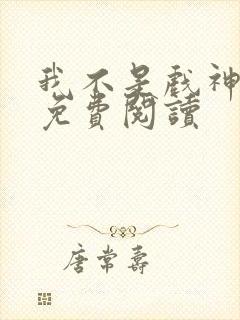 我不是戏神
免費閱讀
唐常壽